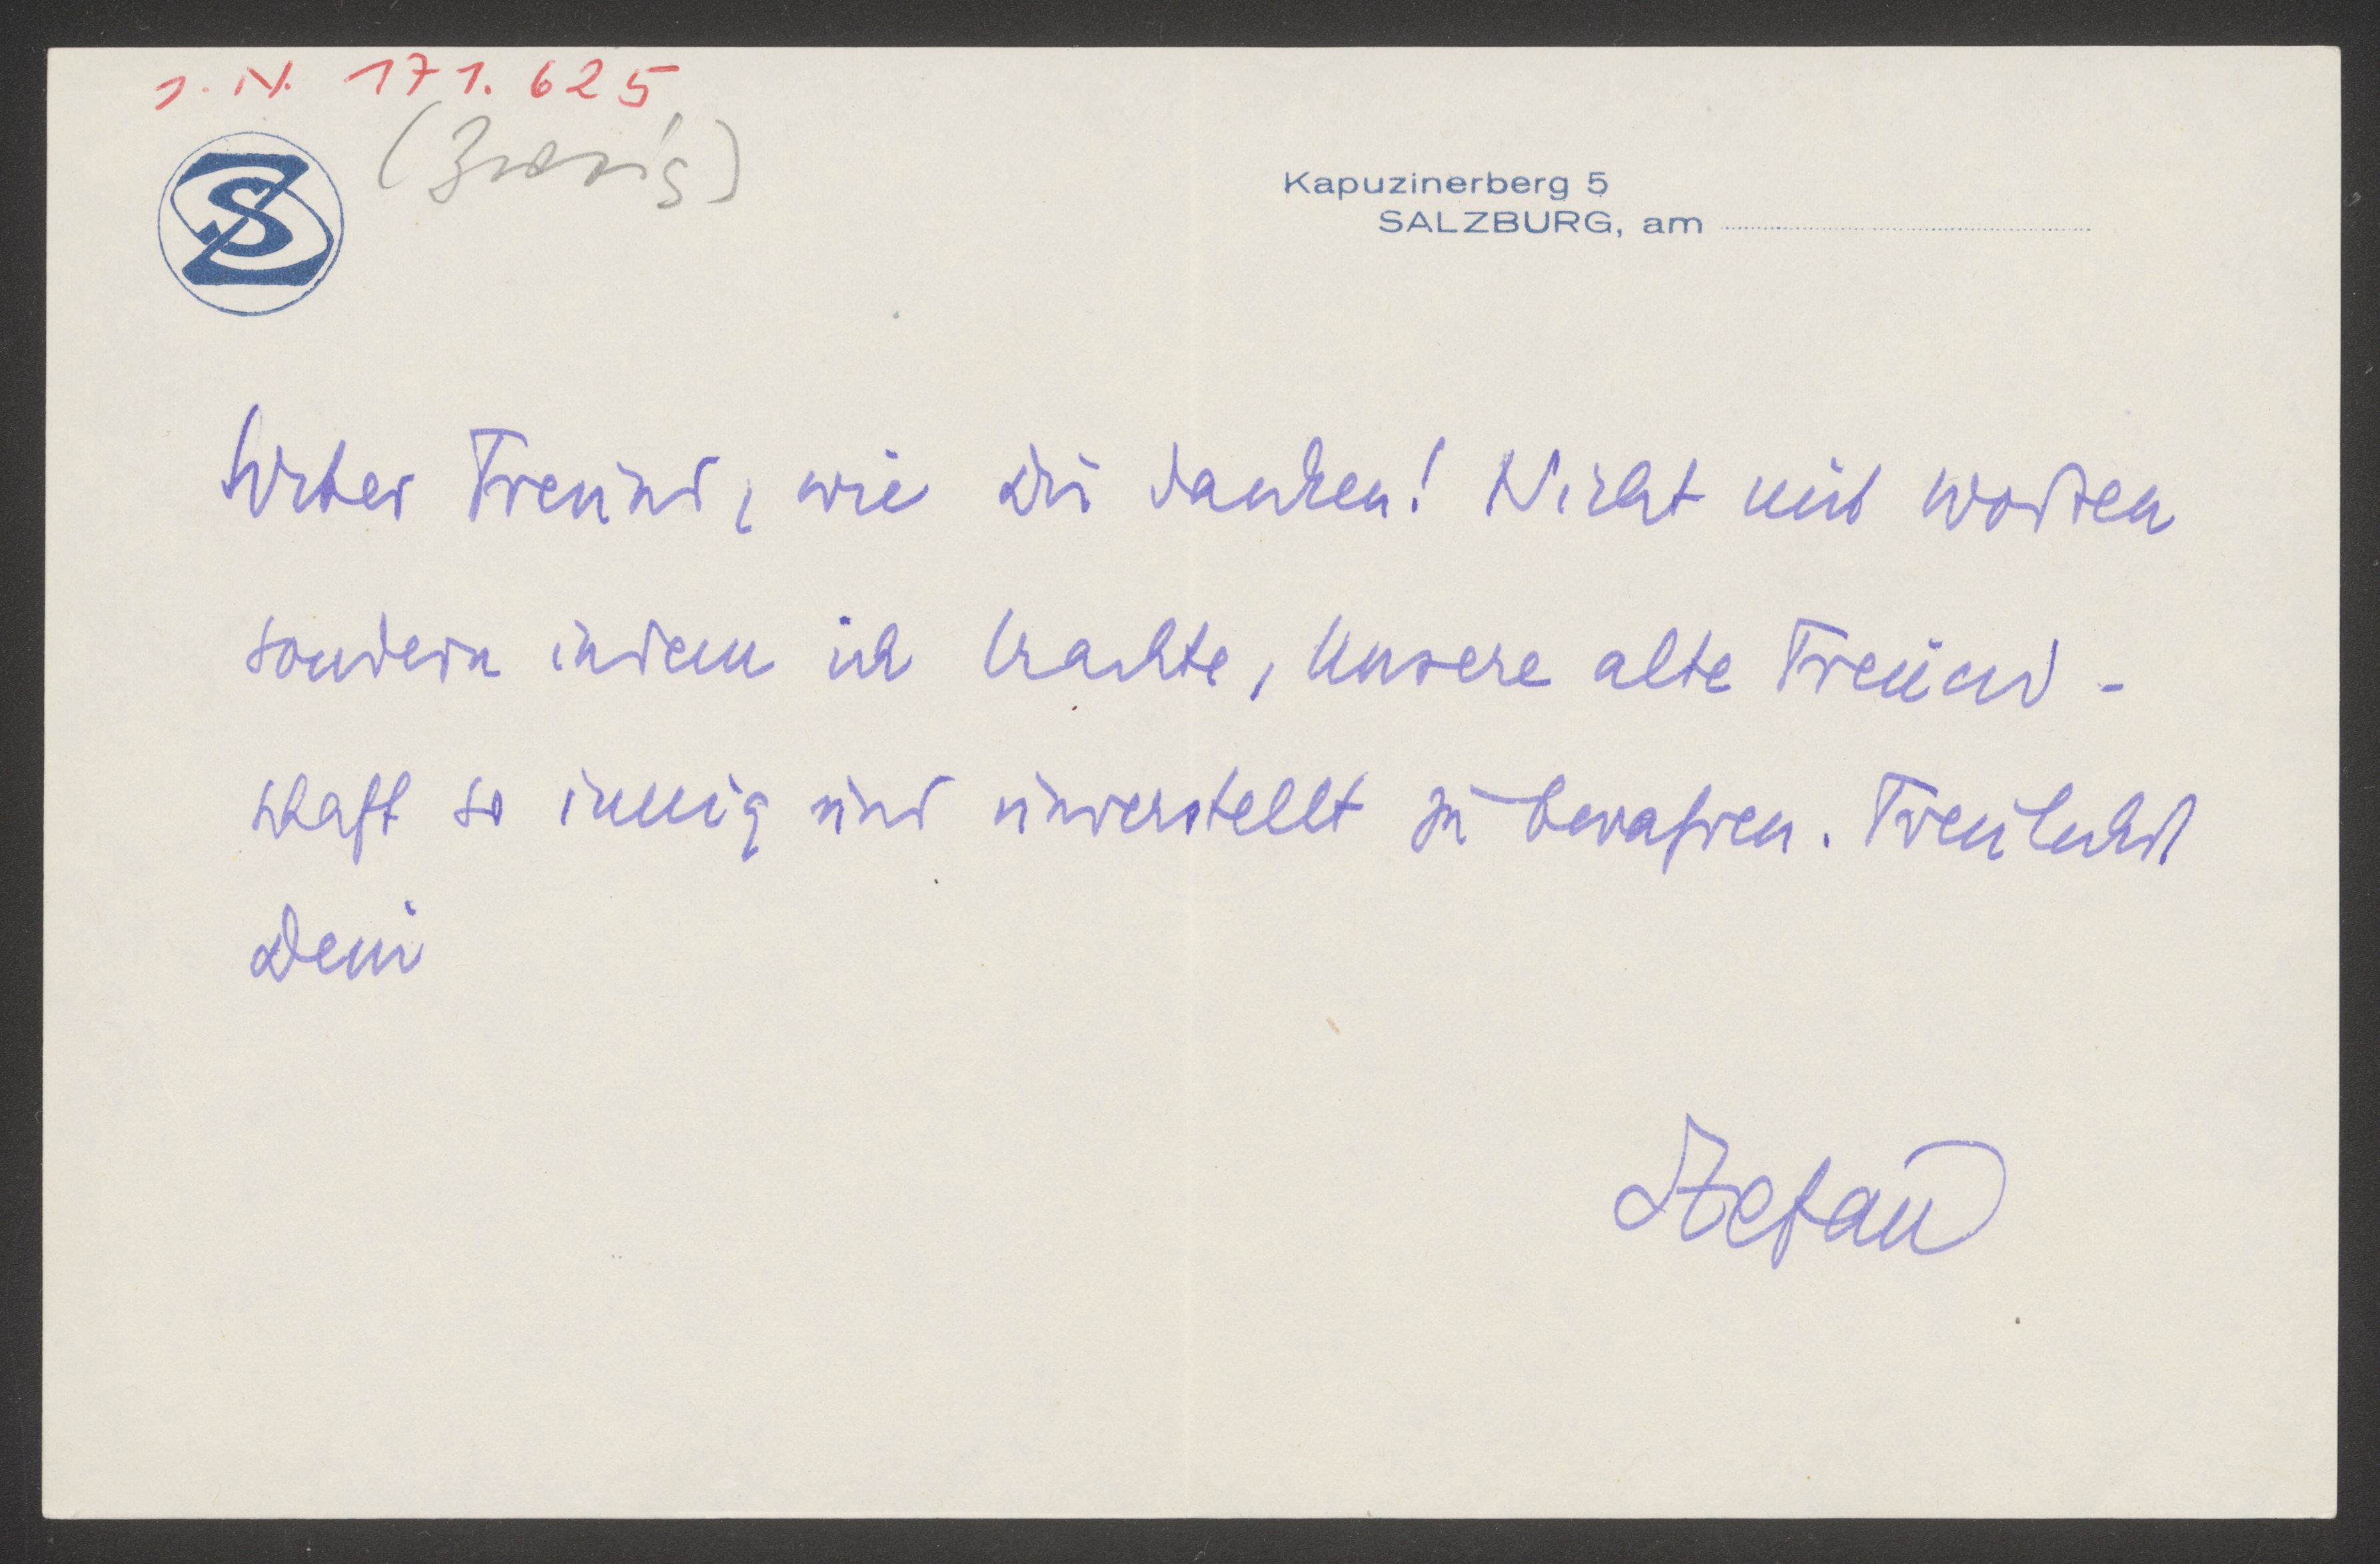 I. N. 171.625
(Zweig)
SZ
Kapuzinerberg 5
SALZBURG, am
Lieber Freund, wie Dir danken! Nicht mit Worten
sondern indem ich trachte, unsere alte Freund-
schaft so innig und unverstellt zu bewahren. Treulichst
Dein
Stefan